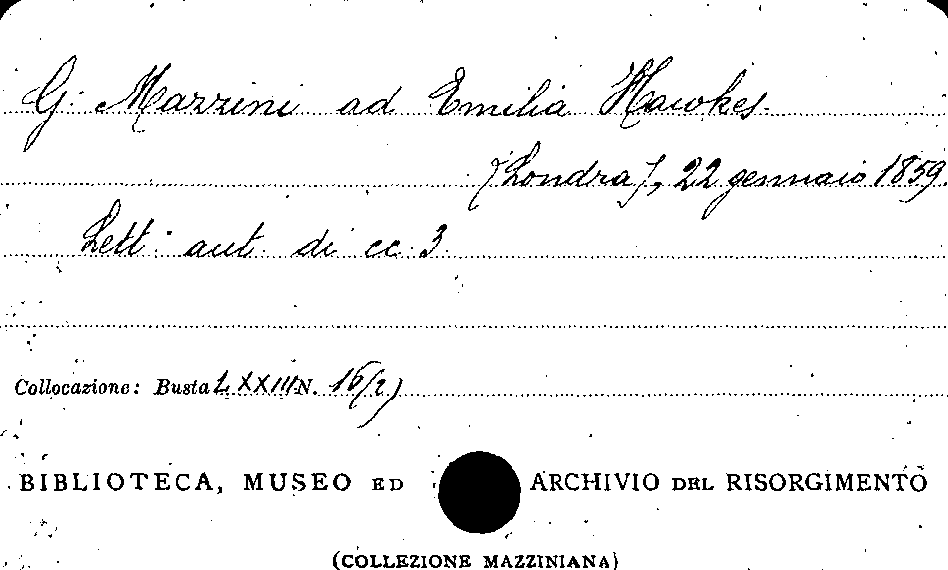 G. Mazzini ad Emilia Hawkes.
[Londra], 22 gennaio 1859.
Lett. aut. di cc. 3.
Collocazione: Busta LXXIII N. 16/2)
BIBLIOTECA, MUSEO ED ARCHIVIO DEL RISORGIMENTO
(COLLEZIONE MAZZINIANA)